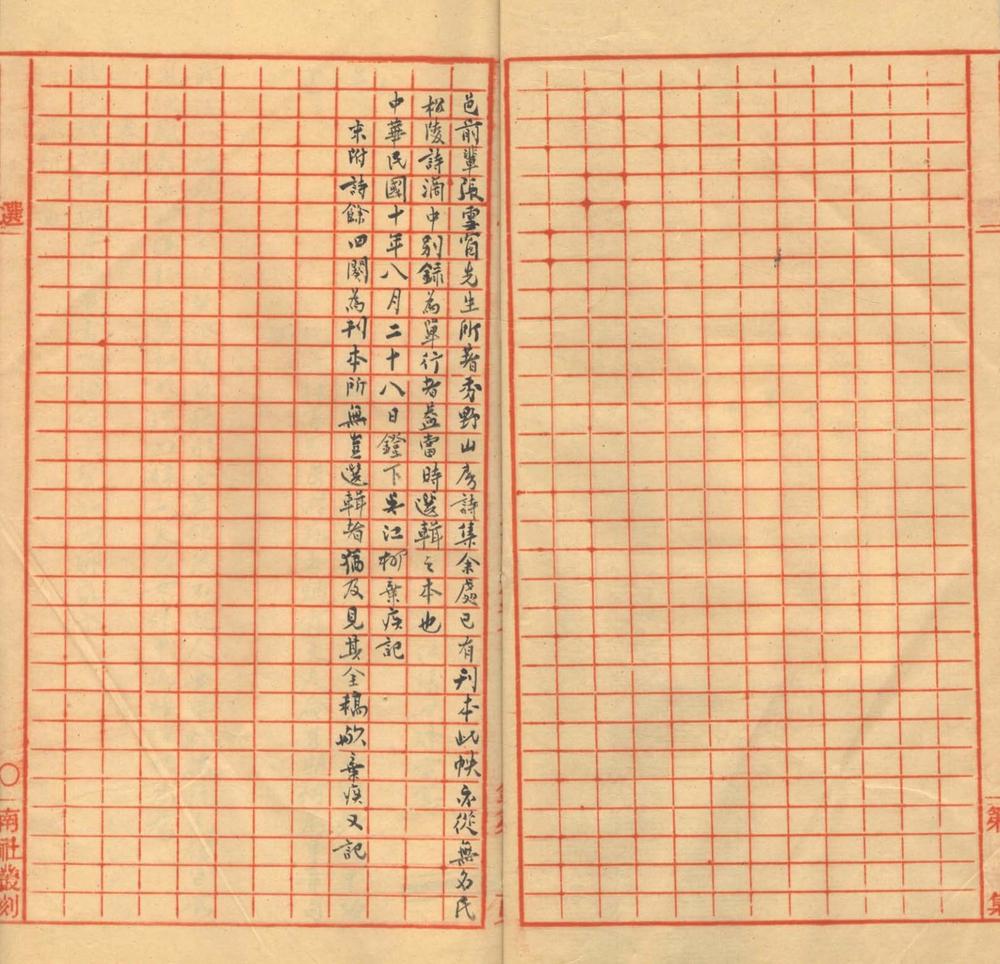 第 集
邑前輩張雪窗先生所著秀野山房詩集余處已有刊本此帙亦從無名氏
松陵詩滴中別錄為單行者蓋當時選輯之本也
中華民國十年八月二十八日鐙下吳江柳棄疾記
末附詩餘四闋為刊本所無豈選輯者猶及見其全稿歟棄疾又記
選
南社叢刻